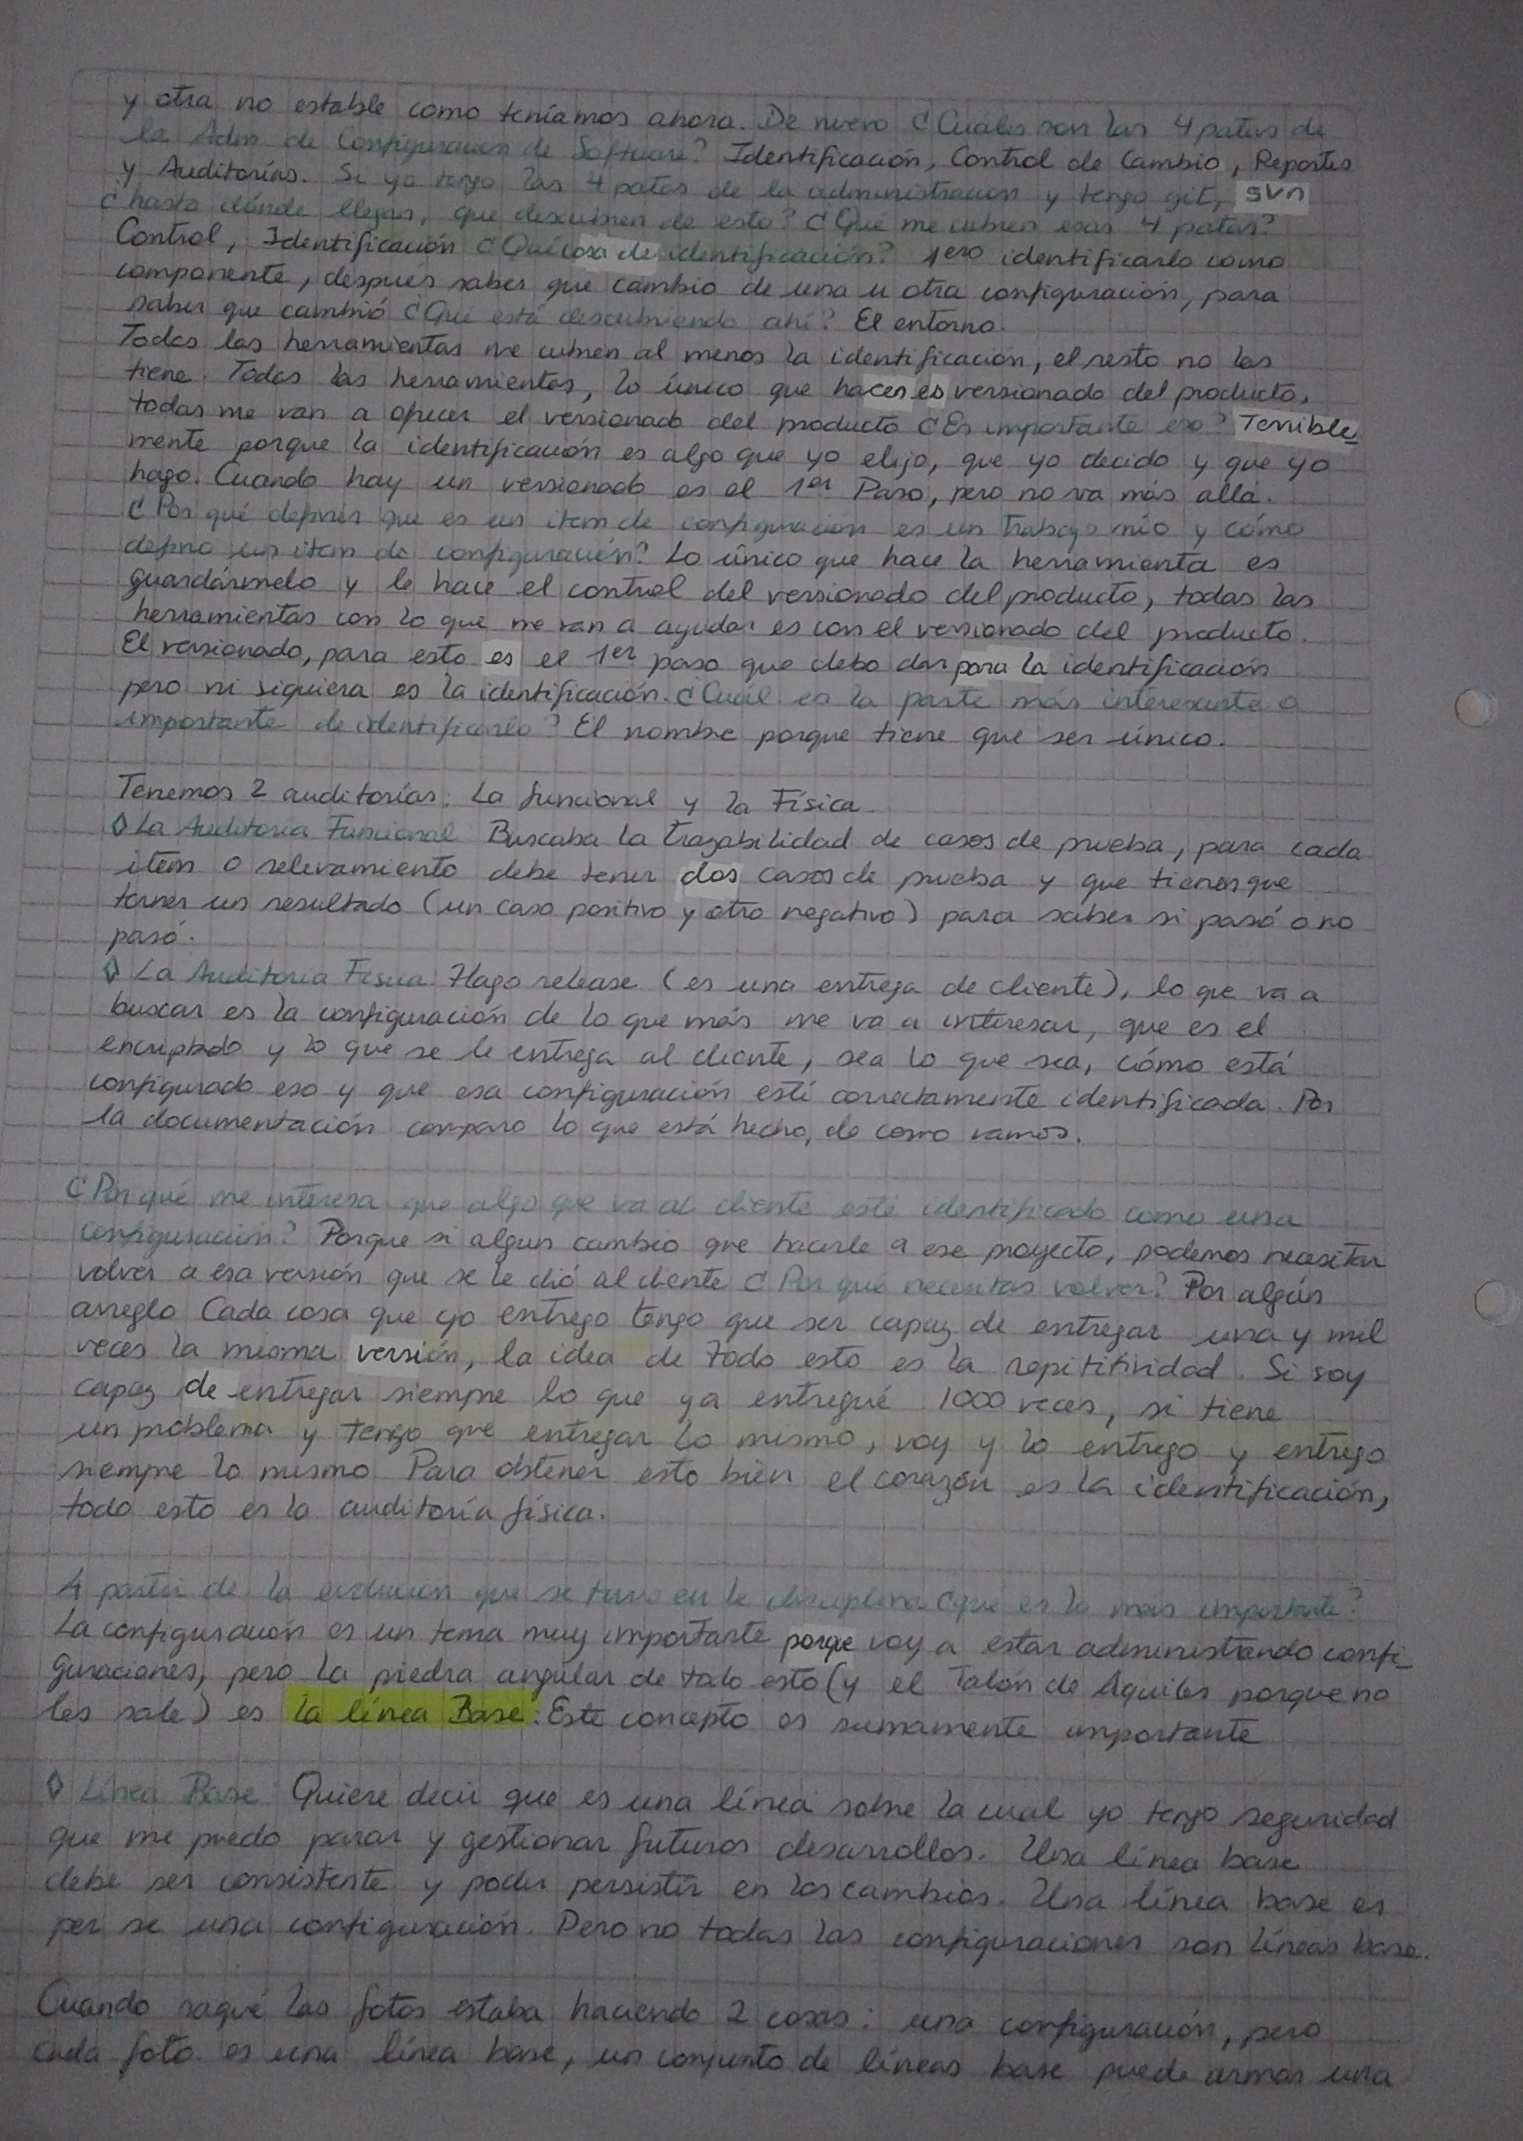 y otra no estable como teníamos ahora. De nuevo ¿Cuáles son las 4 patas de
la Adm de Configuración de Software? Identificación, Control de Cambio, Reportes
y Auditorías. Si yo tengo las 4 patas de la administración y tengo git, svn
¿hasta dónde llegan, que descubren de esto? ¿Qué me cubren esas 4 patas?
Control, Identificación ¿Qué cosa de identificación? 1ero identificarlo como
componente, despues saber que cambio de una u otra configuración, para
saber que cambió ¿Qué está descubriendo ahí? El entorno.
Todas las herramientas me cubren al menos la identificación, el resto no las
tiene. Todas las herramientas, lo único que hacen es versionado del producto,
todas me van a ofrecer el versionado del producto ¿Es importante eso? Terrible_
mente porque la identificación es algo que yo elijo, que yo decido y que yo
hago. Cuando hay un versionado es el 1er Paso, pero no va más allá.
¿Por qué definir que es un item de configuración es un trabajo mío y cómo
defino un item de configuración? Lo único que hace la herramienta es
guardármelo y le hace el control del versionado del producto, todas las
herramientas con lo que me van a ayudar es con el versionado del producto.
El versionado, para esto es el 1er paso que debo dar para la identificación
pero ni siquiera es la identificación. ¿Cuál es la parte más interesante o
importante de identificarlo? El nombre porque tiene que ser único.
Tenemos 2 auditorías: La funcional y la Física.
◊ La Auditoría Funcional: Buscaba la trazabilidad de casos de prueba, para cada
item o relevamiento debe tener dos casos de prueba y que tienen que
tener un resultado (un caso positivo y otro negativo) para saber si pasó o no
pasó.
◊ La Auditoría Física: Hago release (es una entrega de cliente), lo que va a
buscar es la configuración de lo que más me va a interesar, que es el
encriptado y lo que se le entrega al cliente, sea lo que sea, cómo está
configurado eso y que esa configuración esté correctamente identificada. Por
la documentación comparo lo que está hecho, de como vamos.
¿Por qué me interesa que algo que va al cliente esté identificado como una
configuración? Porque si algun cambio que hacerle a ese proyecto, podemos necesitar
volver a esa versión que se le dió al cliente ¿Por qué necesitas volver? Por algún
arreglo Cada cosa que yo entrego tengo que ser capaz de entregar una y mil
veces la misma versión, la idea de todo esto es la repititividad. Si soy
capaz de entregar siempre lo que ya entregué 1000 veces, si tiene
un problema y tengo que entregar lo mismo, voy y lo entrego y entrego
siempre lo mismo Para obtener esto bien el corazón es la identificación,
todo esto es la auditoría física.
A partir de la evolución que se tuvo en la disciplina ¿que es lo más importante?
La configuración es un tema muy importante porque voy a estar administrando confi_
guraciones, pero la piedra angular de todo esto (y el Talón de Aquiles porque no
les sale) es la línea Base: Este concepto es sumamente importante
◊ Línea Base: Quiere decir que es una línea sobre la cual yo tengo seguridad
que me puedo parar y gestionar futuros desarrollos. Una línea base
debe ser consistente y poder persistir en los cambios. Una línea base es
per se una configuración. Pero no todas las configuraciones son líneas base.
Cuando saqué las fotos estaba haciendo 2 cosas: una configuración, pero
cada foto es una línea base, un conjunto de líneas base puede armar una